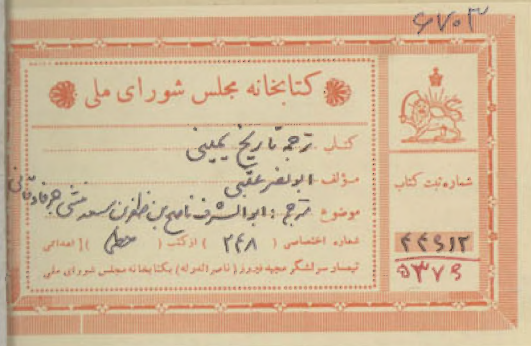 ۶۷۰۳
کتابخانه مجلس شورای ملی
کتاب ترجمه تاریخ یمینی
مؤلف ابونصر عتبی
موضوع مترجم: ابوالشرف ناصح بن ظفر بن سعد منشی جرفادقانی
شماره اختصاصی ( ۲۴۸ ) از کتب ( خطی ) اهدائی
تیمسار سرلشگر مجید فیروز (ناصرالدوله) بکتابخانه مجلس شورای ملی
شماره ثبت کتاب
۴۴۶۱۲
۵۳۷۹